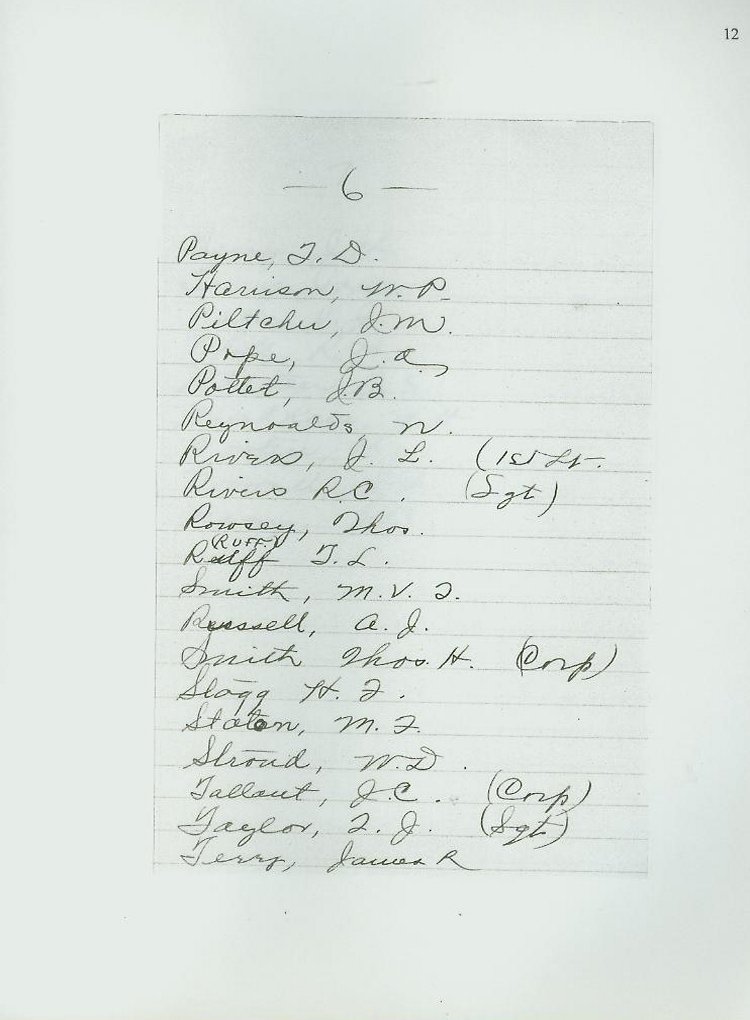 12
— 6 —
Payne, T. D.
Harrison, W. P.
Piltcher, J. M.
Pope, J. A,
Pottet, J. B.
Reynoalds, N.
Rivers, J. L. (1st Lt.
Rivers R. C. (Sgt)
Rowsey, Thos.
(RUFF)
Ruff T. L.
Smith, M. V. T.
Russell, A. J.
Smith Thos. H. (Corp)
Slagg H. F.
Staton, M. F.
Stroud, W. D.
Tallant, J. C. (Corp)
Taylor, J. (Sgt)
Terry, James R